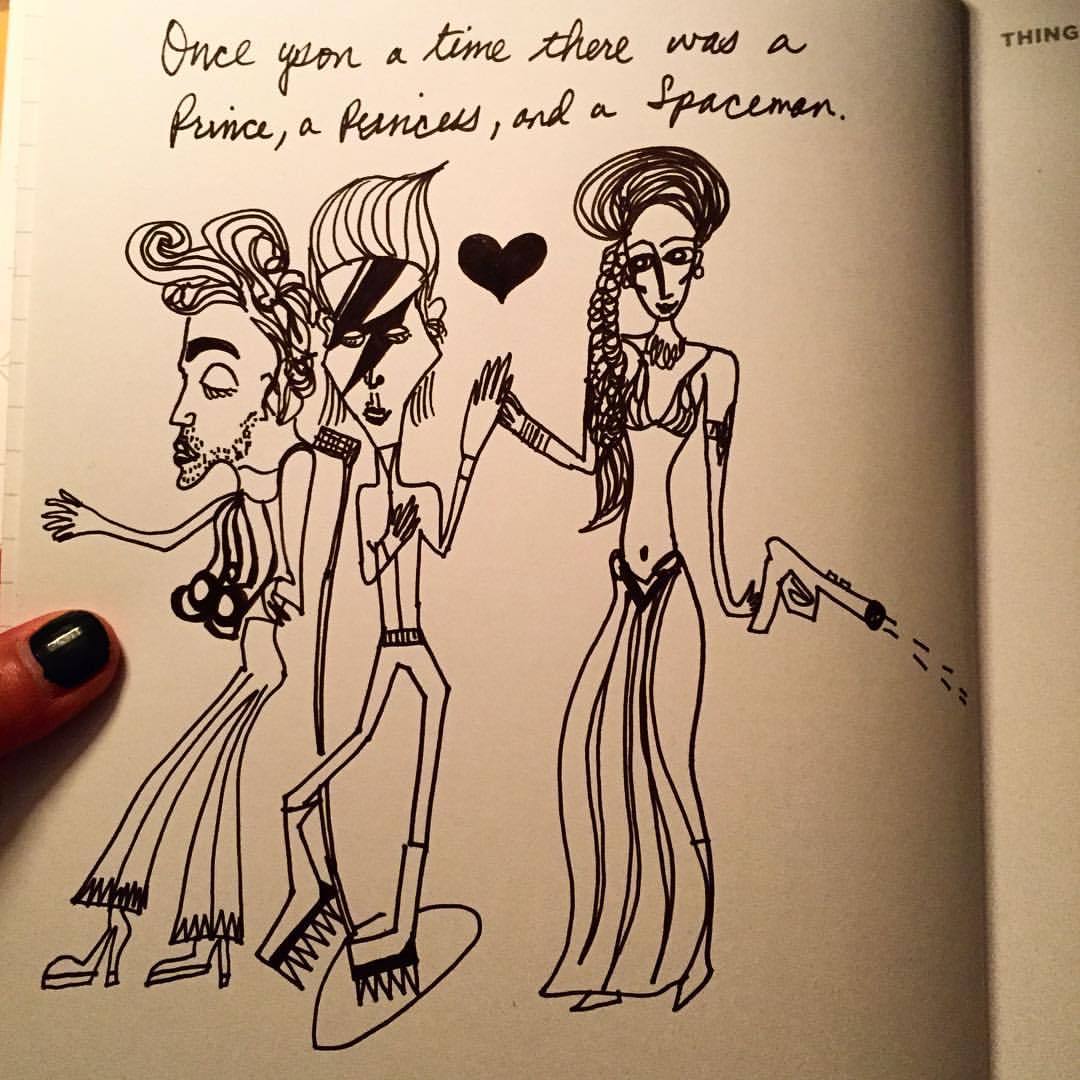 Once upon a time there was a
Prince, a Princess, and a Spaceman.
THING